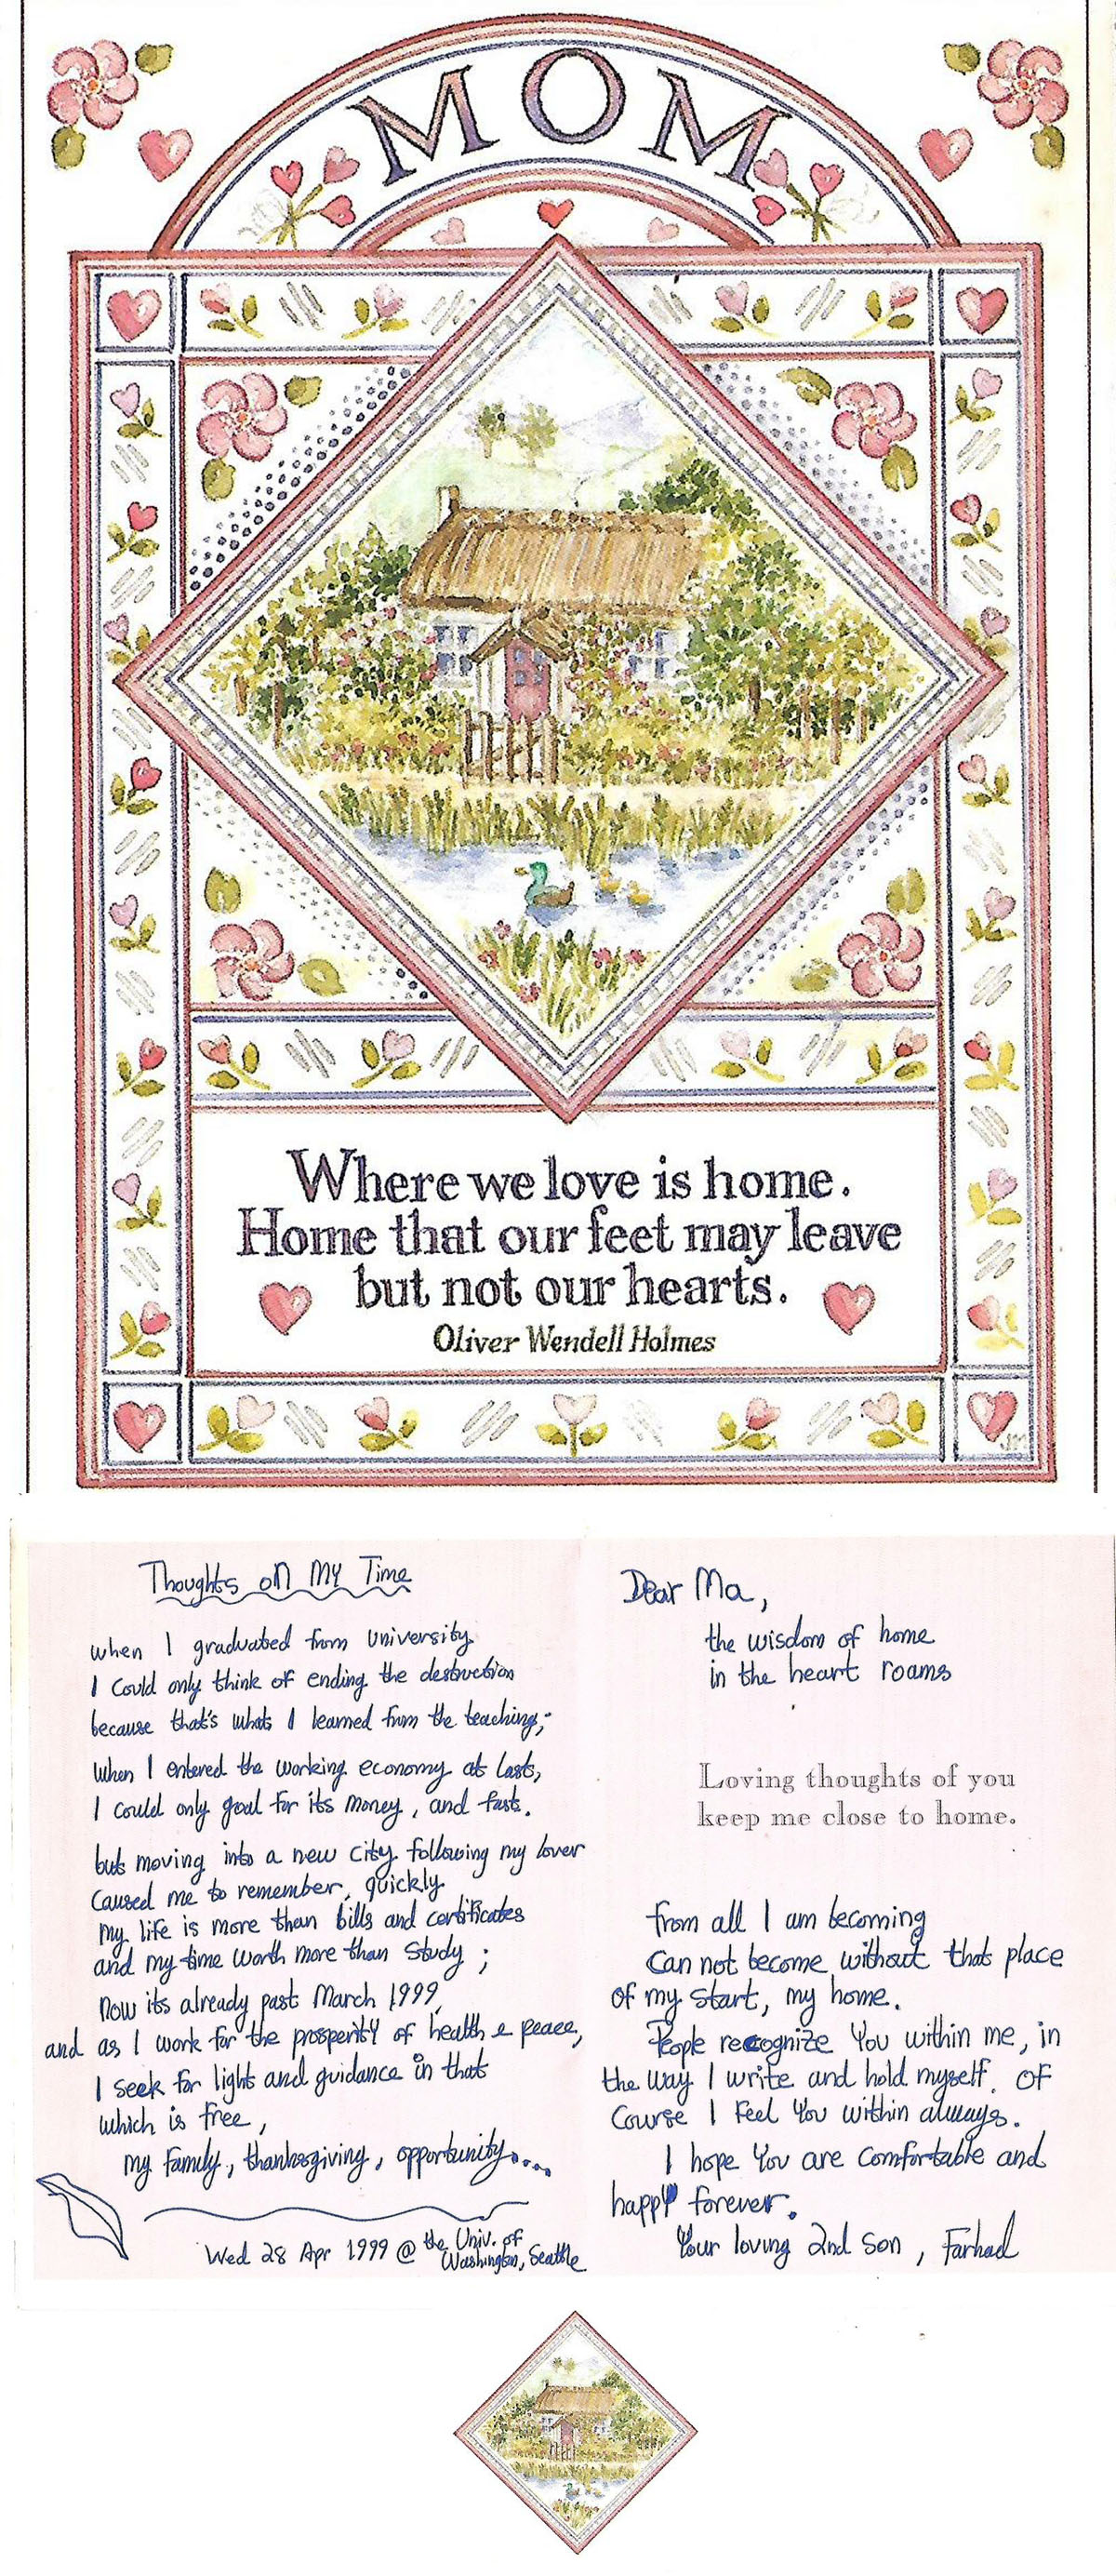 MOM
Where we love is home.
Home that our feet may leave
but not our hearts.
Oliver Wendell Holmes
Thoughts on My Time
when I graduated from University
I could only think of ending the destruction
because that's whats I learned from the teaching;
when I entered the working economy at lasts,
I could only goal for its money, and fasts.
but moving into a new city following my lover
caused me to remember, quickly
my life is more than bills and certificates
and my time worth more than study ;
now its already past March 1999,
and as I work for the prosperity of health & peace,
I seek for light and guidance in that
which is free,
my family, thanksgiving, opportunity....
Wed 28 Apr 1999 @ the Univ. of
Washington, Seattle
Dear Ma,
the wisdom of home
in the heart roams
Loving thoughts of you
keep me close to home.
from all I am becoming
Can not become without that place
of my start, my home.
People recognize You within me, in
the way I write and hold myself. Of
course I Feel You within always.
I hope You are comfortable and
happy forever.
Your loving 2nd son, Farhad